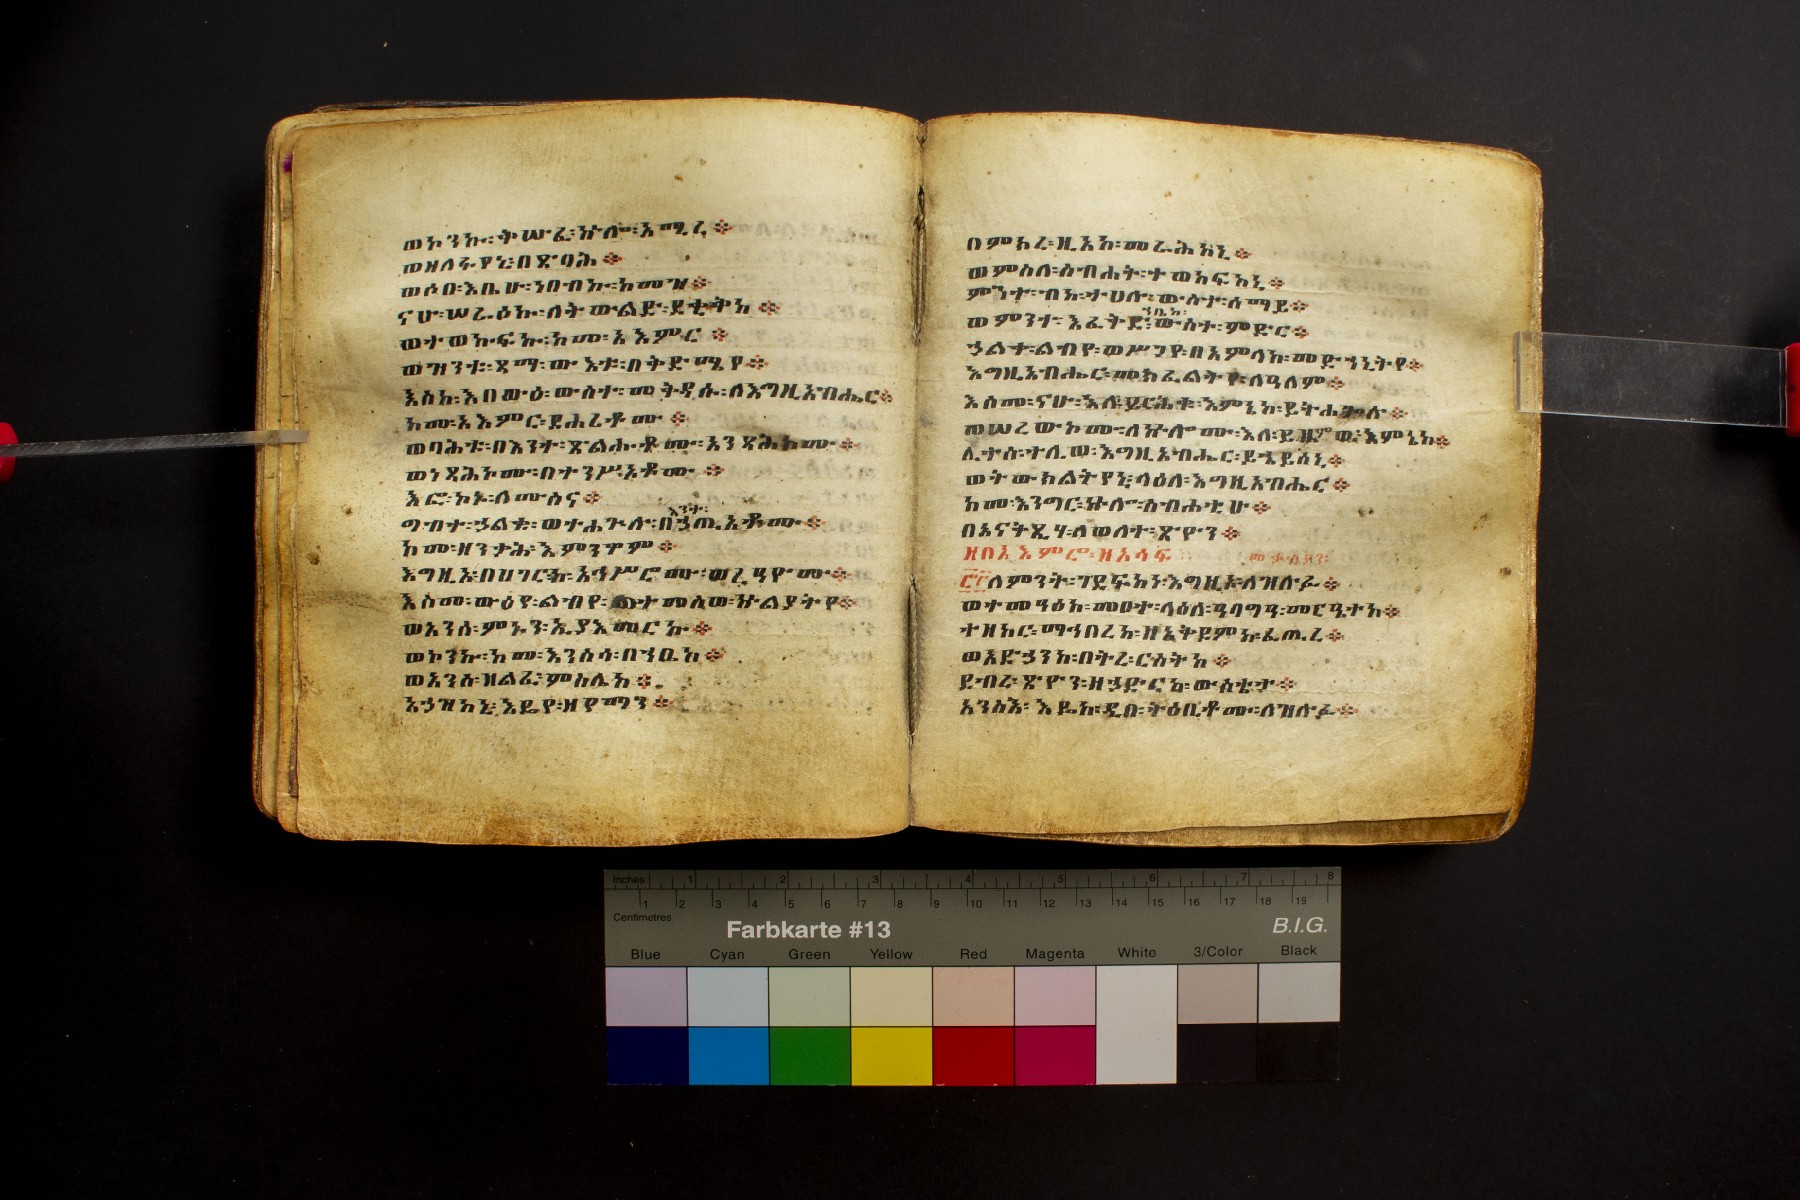 ወኮንኩ፡ቅሡፈ፡ኵሎ፡አሚረ፨
ወዘለፋየኒ፡በጽባሕ፨
ወሶበ፡እቤሁ፡ነበብኩ፡ከመዝ፨
ናሁ፡ሠራዕኩ፡ለትውልደ፡ደቂቅከ፨
ወተወከፍኩ፡ከመ፡አእምር፨
ወዝንቱ፡ጻማ፡ውእቱ፡በቅድሜየ፨
እስከ፡እበውዕ፡ውስተ፡መቅደሱ፡ለእግዚአብሔር፨
ከመ፡አእምር፡ደሐሪቶሙ፨
ወባሕቱ፡በእንተ፡ጽልሑቶሙ፡አንጻሕከሙ፨
ወነጻሕኮሙ፡በተንሥኦቶሙ፨
እፎ፡ኮኑ፡ለሙስና፨
እንተ፡
ግብተ፡ኃልቁ፡ወተሐጕሉ፡በኃጢአቶሙ፨
ከመ፡ዘንቃሕ፡እምንዋም፨
እግዚኦ፡በሀገርከ፡አኅሥሮሙ፡ወረዓዮሙ፨
እስመ፡ውዕየ፡ልብየ፡ወተመሰወ፡ኵልያትየ፨
ወአንሰ፡ምኑን፡ኢያእመርኩ፨
ወኮንኩ፡ከመ፡እንስሳ፡በኀቤከ፨
ወአንሰ፡ዘልፈ፡ምስሌከ፨
አኃዝከኒ፡እዴየ፡ዘየማን፨
በምክረ፡ዚአከ፡መራሕከኒ፨
ወምስለ፡ስብሐት፡ተወከፍከኒ፨
ምንተ፡ብከ፡ተሀሉ፡ውስተ፡ሰማይ፨
ኀቤከ፡
ወምንተ፡እፈቅድ፡ውስተ፡ምድር፨
ኃልቀ፡ልብየ፡ወሥጋየ፡በአምላከ፡መድኀኒትየ፨
እግዚአብሔር፡መክፈልትየ፡ለዓለም፨
እስመ፡ናሁ፡እለ፡ይርሕቁ፡እምኔከ፡ይትሐጐሉ፨
ወሠረውኮሙ፡ለኵሎሙ፡እለ፡ይዜምዉ፡እምኔከ፨
ሊተሰ፡ተሊወ፡እግዚአብሔር፡ይኄይሰኒ፨
ወትውክልትየኒ፡ላዕለ፡እግዚአብሔር፨
ከመ፡እንግር፡ኵሎ፡ስብሐቲሁ፨
በአናቅጺሃ፡ለወለተ፡ጽዮን፨
ዘበአእምሮ፡ዘአሳፍ
ለምንት፡ገደፍከነ፡እግዚኦ፡ለዝሉፉ፨
ወተመዓዕከ፡መዐተ፡ላዕለ፡ዓባግዓ፡መርዔትከ፨
ተዘከር፡ማኅበረከ፡ዘእትቀድምከ፡ፈጢረ፨
ወአድኃንከ፡በትረ፡ርስትከ፨
ደብረ፡ጽዮን፡ዘኃደርከ፡ውስቴታ፨
አንሥእ፡እዴከ፡ዲበ፡ትዕቢቶሙ፡ለዝሉፉ፨
Inches 1 2 3 4 5 6 7 8
1 2 3 4 5 6 7 8 9 10 11 12 13 14 15 16 17 18 19
Centimetres
Farbkarte #13
B.I.G.
Blue Cyan Green Yellow Red Magenta White 3/Color Black